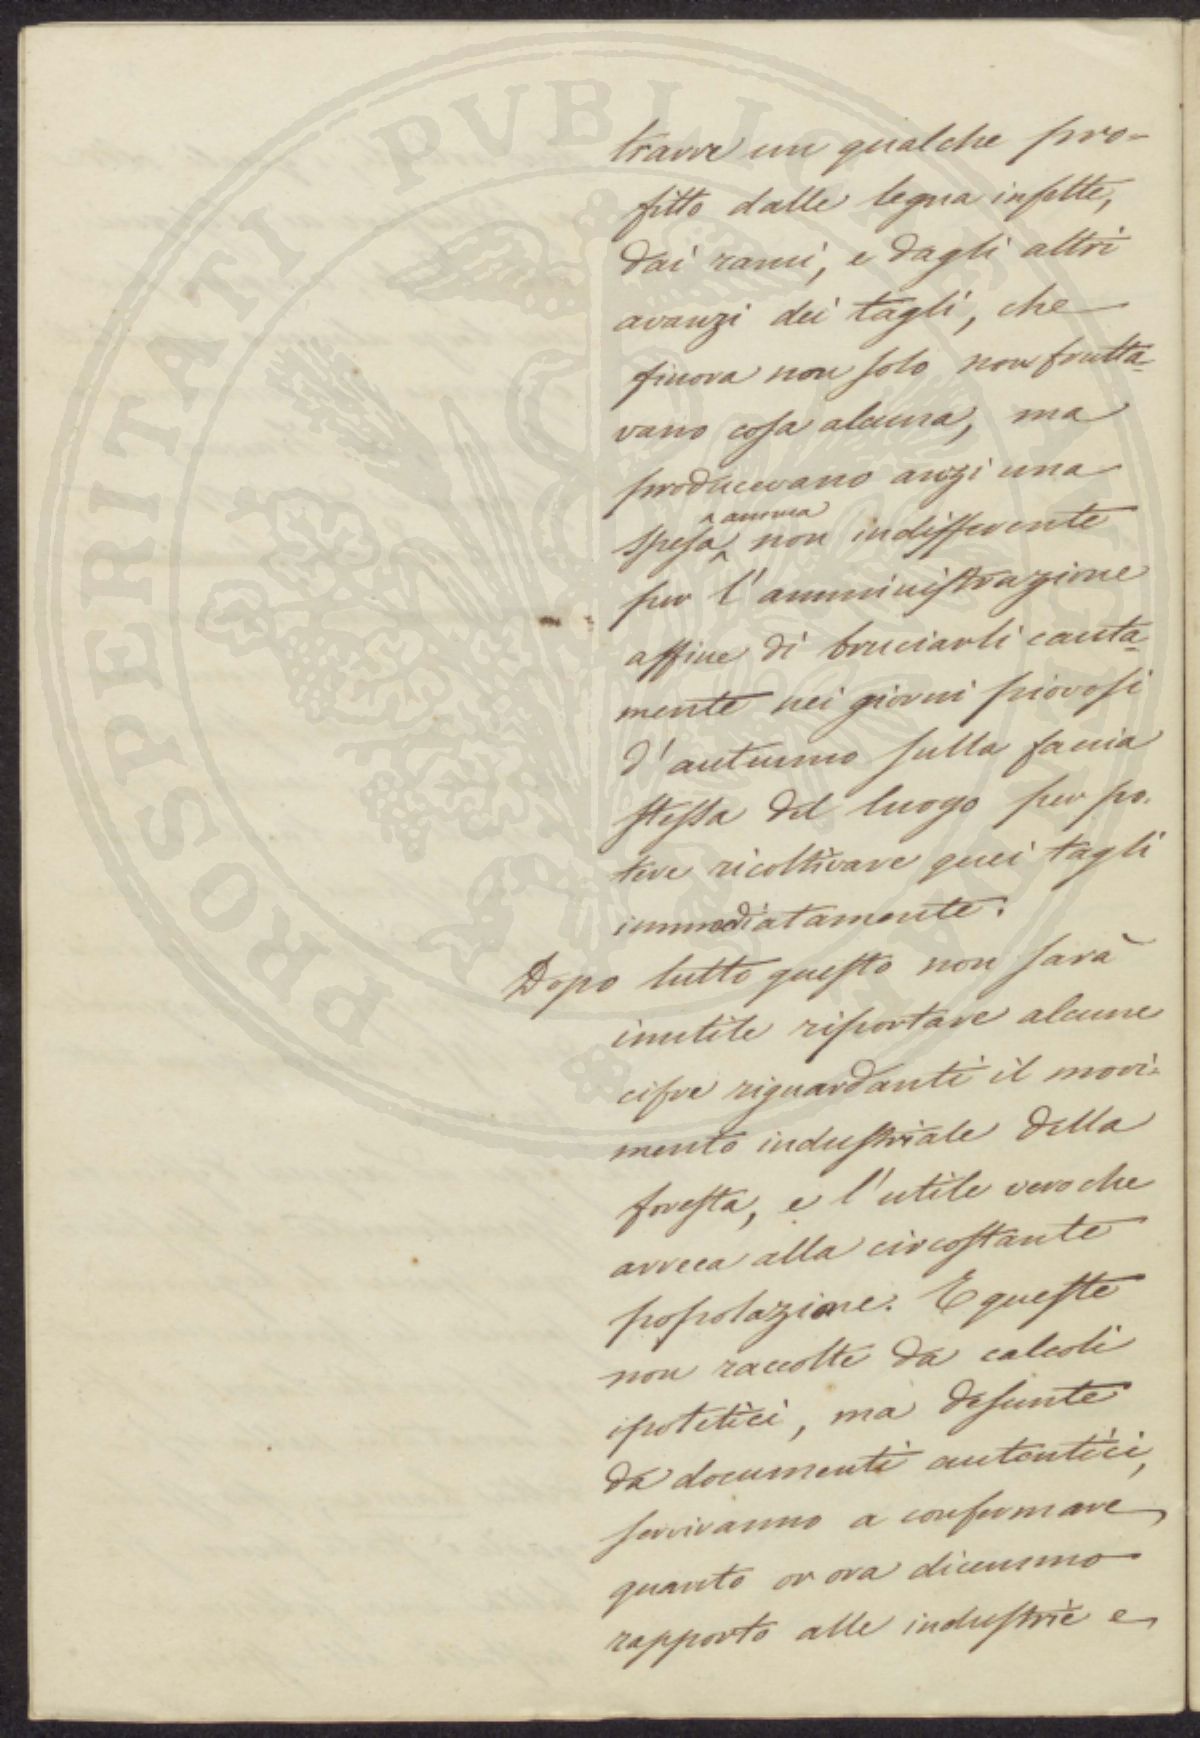 trarre un qualche pro-
fitto dalle legna infette,
dai rami, e dagli altri
avanzi dei tagli, che
finora non solo non frutta-
vano cosa alcuna, ma
producevano anzi una
annua
spesa non indifferente
per l'amministrazione
affine di bruciarli cauta-
mente nei giorni piovosi
d'autunno sulla faccia
stessa del luogo per po-
tere ricoltivare quei tagli
immediatamente.
Dopo tutto questo non sarà
inutile riportare alcune
cifre riguardanti il movi-
mento industriale della
foresta, e l'utile vero che
arreca alla circostante
popolazione. E queste
non raccolte da calcoli
ipotetici, ma desunte
da documenti autentici,
serviranno a confermare
quanto or ora dicemmo
rapporto alle industrie e
PROSPERITATI PVBLICAE AVGENDAE